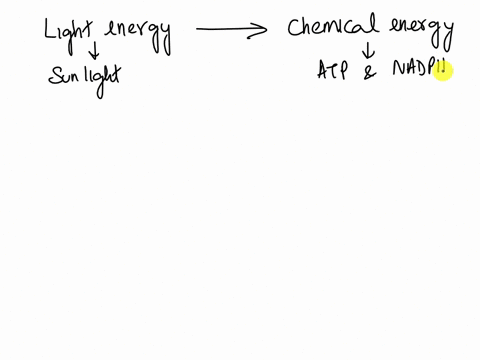 Light energy → Chemical energy
↓ ↓
Sunlight ATP & NADPH